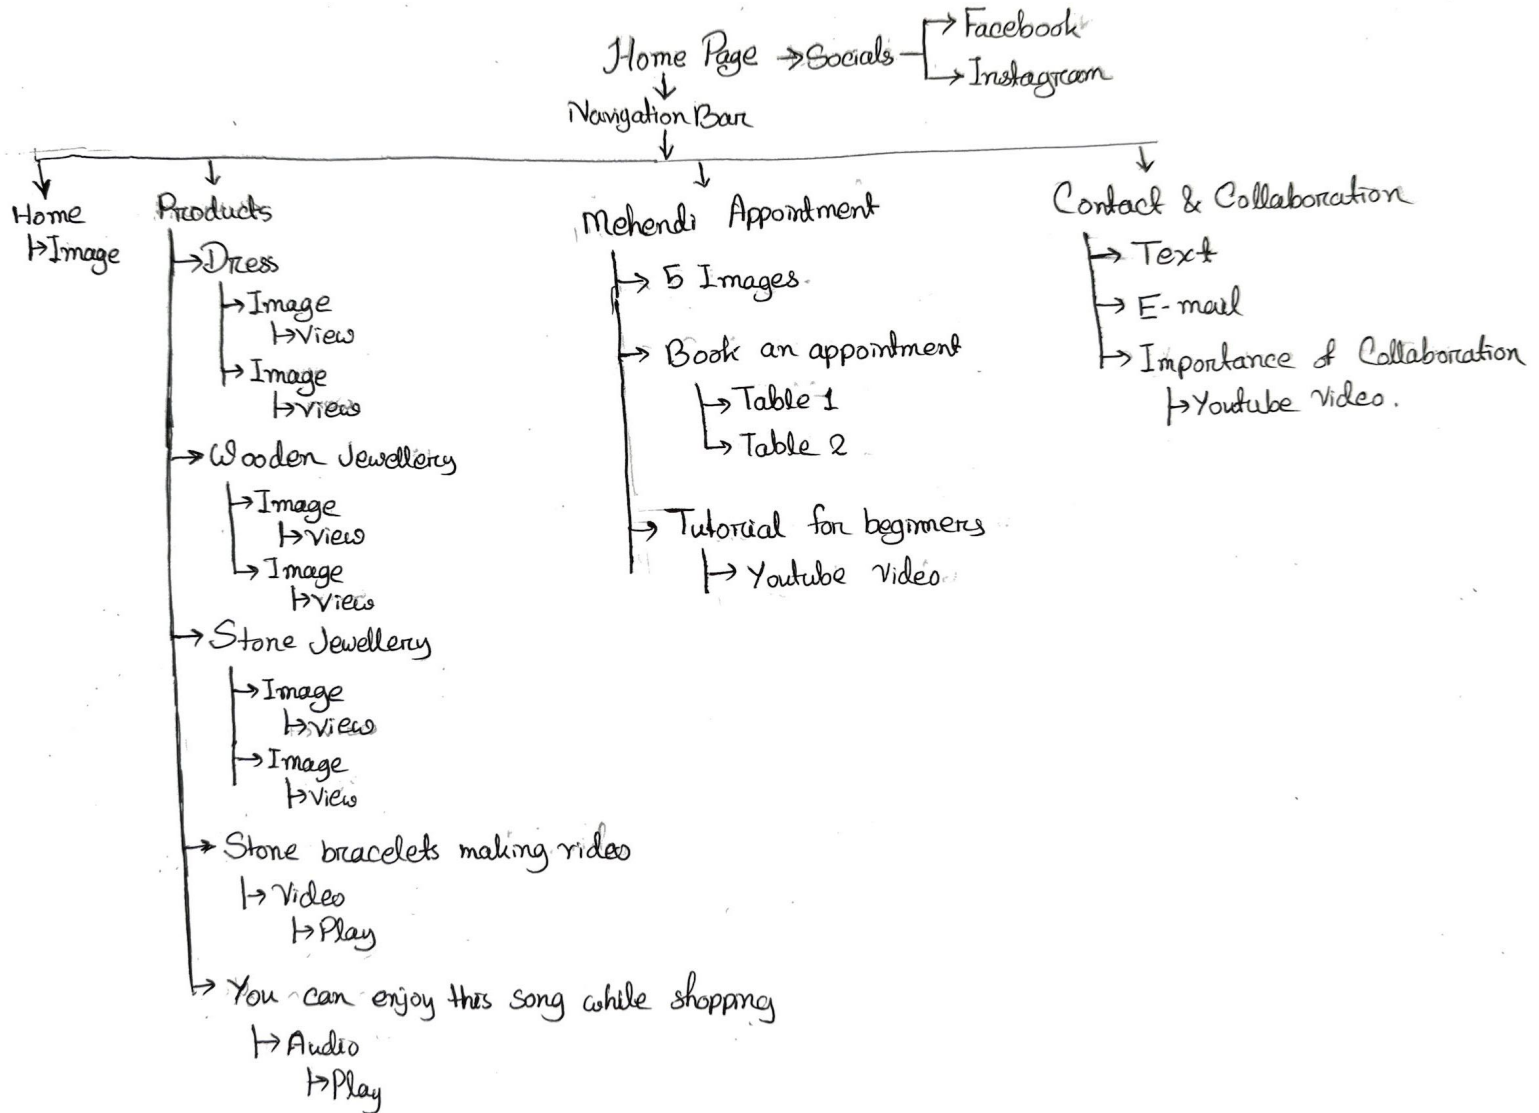 Home Page → Socials
→ Facebook
→ Instagram
Navigation Bar
Home
→ Image
Products
→ Dress
→ Image
→ View
→ Image
→ View
→ Wooden Jewellery
→ Image
→ View
→ Image
→ View
→ Stone Jewellery
→ Image
→ View
→ Image
→ View
→ Stone bracelets making video
→ Video
→ Play
→ You can enjoy this song while shopping
→ Audio
→ Play
Mehendi Appointment
→ 5 Images.
→ Book an appointment
→ Table 1
→ Table 2
→ Tutorial for beginners
→ Youtube Video
Contact & Collaboration
→ Text
→ E-mail
→ Importance of Collaboration
→ Youtube Video.